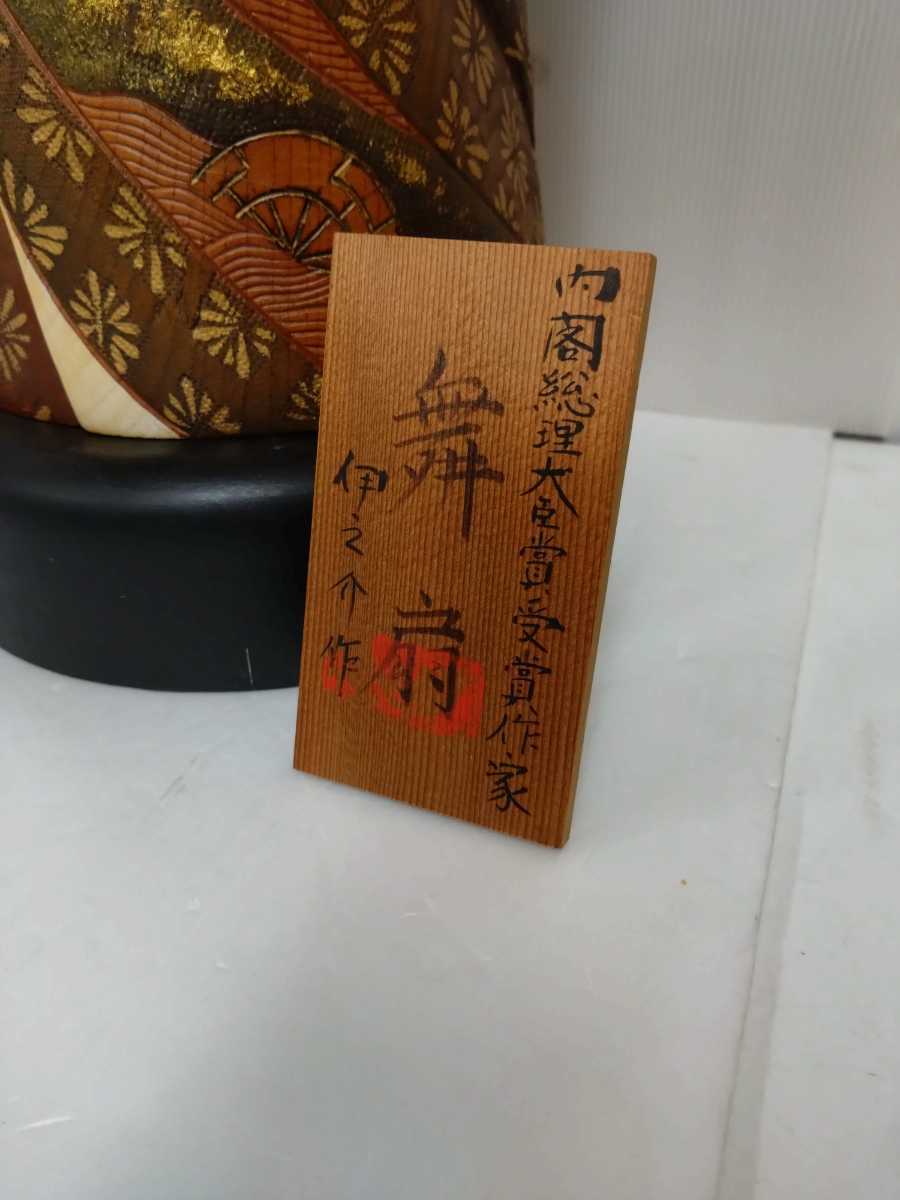 内閣総理大臣賞受賞作家
舞扇
伊之介作